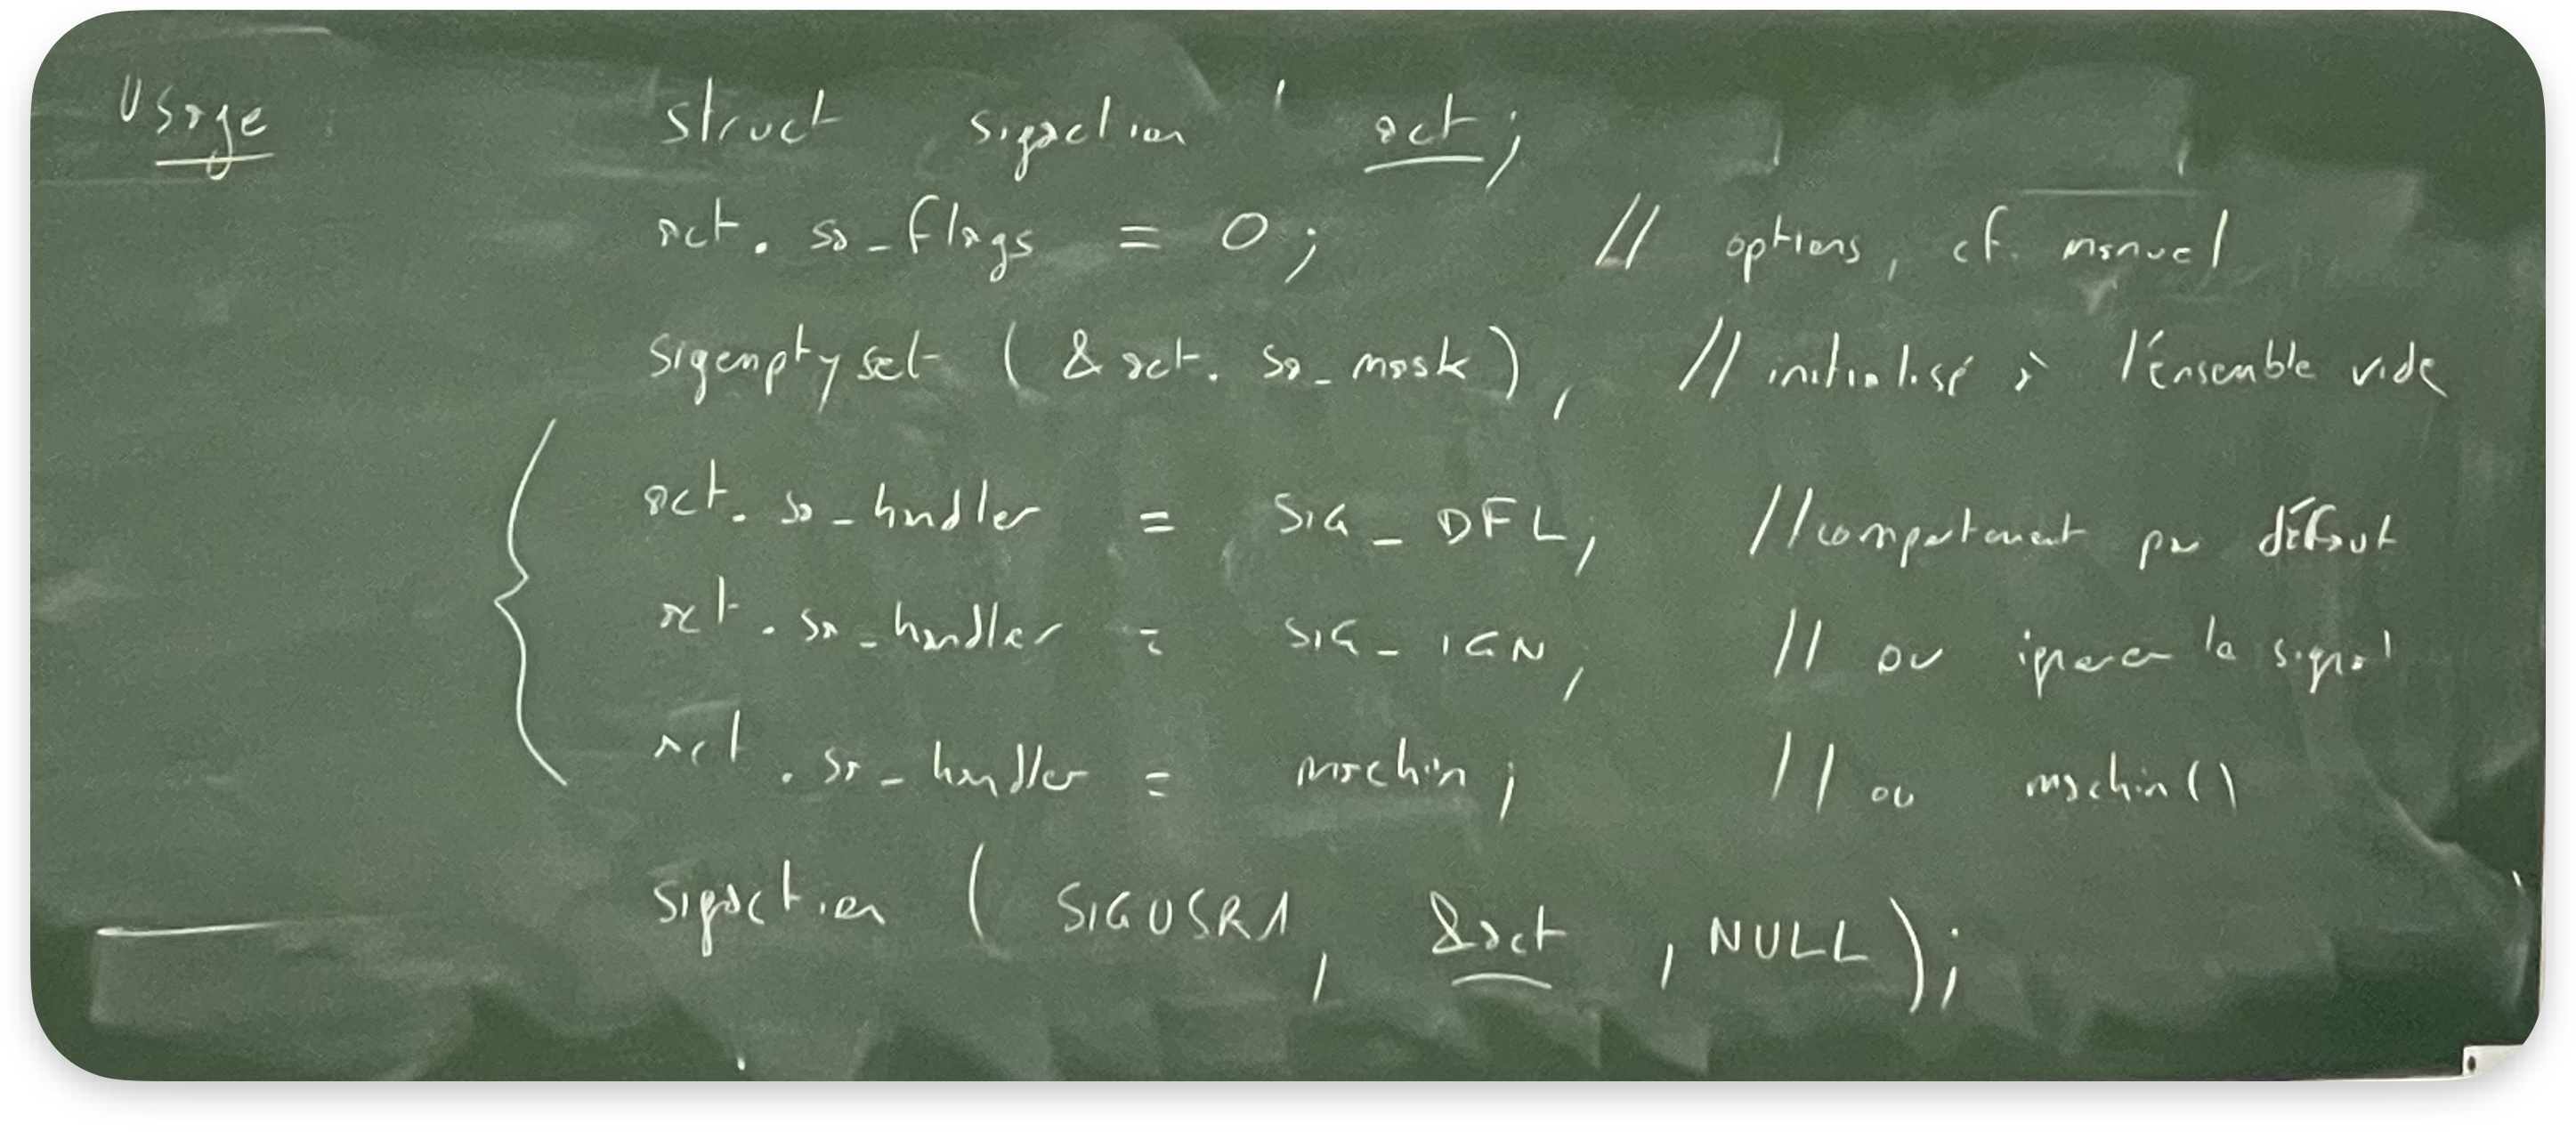 Usage struct sigaction act;
act.sa_flags = 0; // options, cf. manuel
sigemptyset (&act.sa_mask), // initialisé à l'ensemble vide
act.sa_handler = SIG_DFL; // comportement par défaut
act.sa_handler = SIG_IGN; // ou ignorer le signal
act.sa_handler = machin; // ou machin()
sigaction (SIGUSR1, &act, NULL);